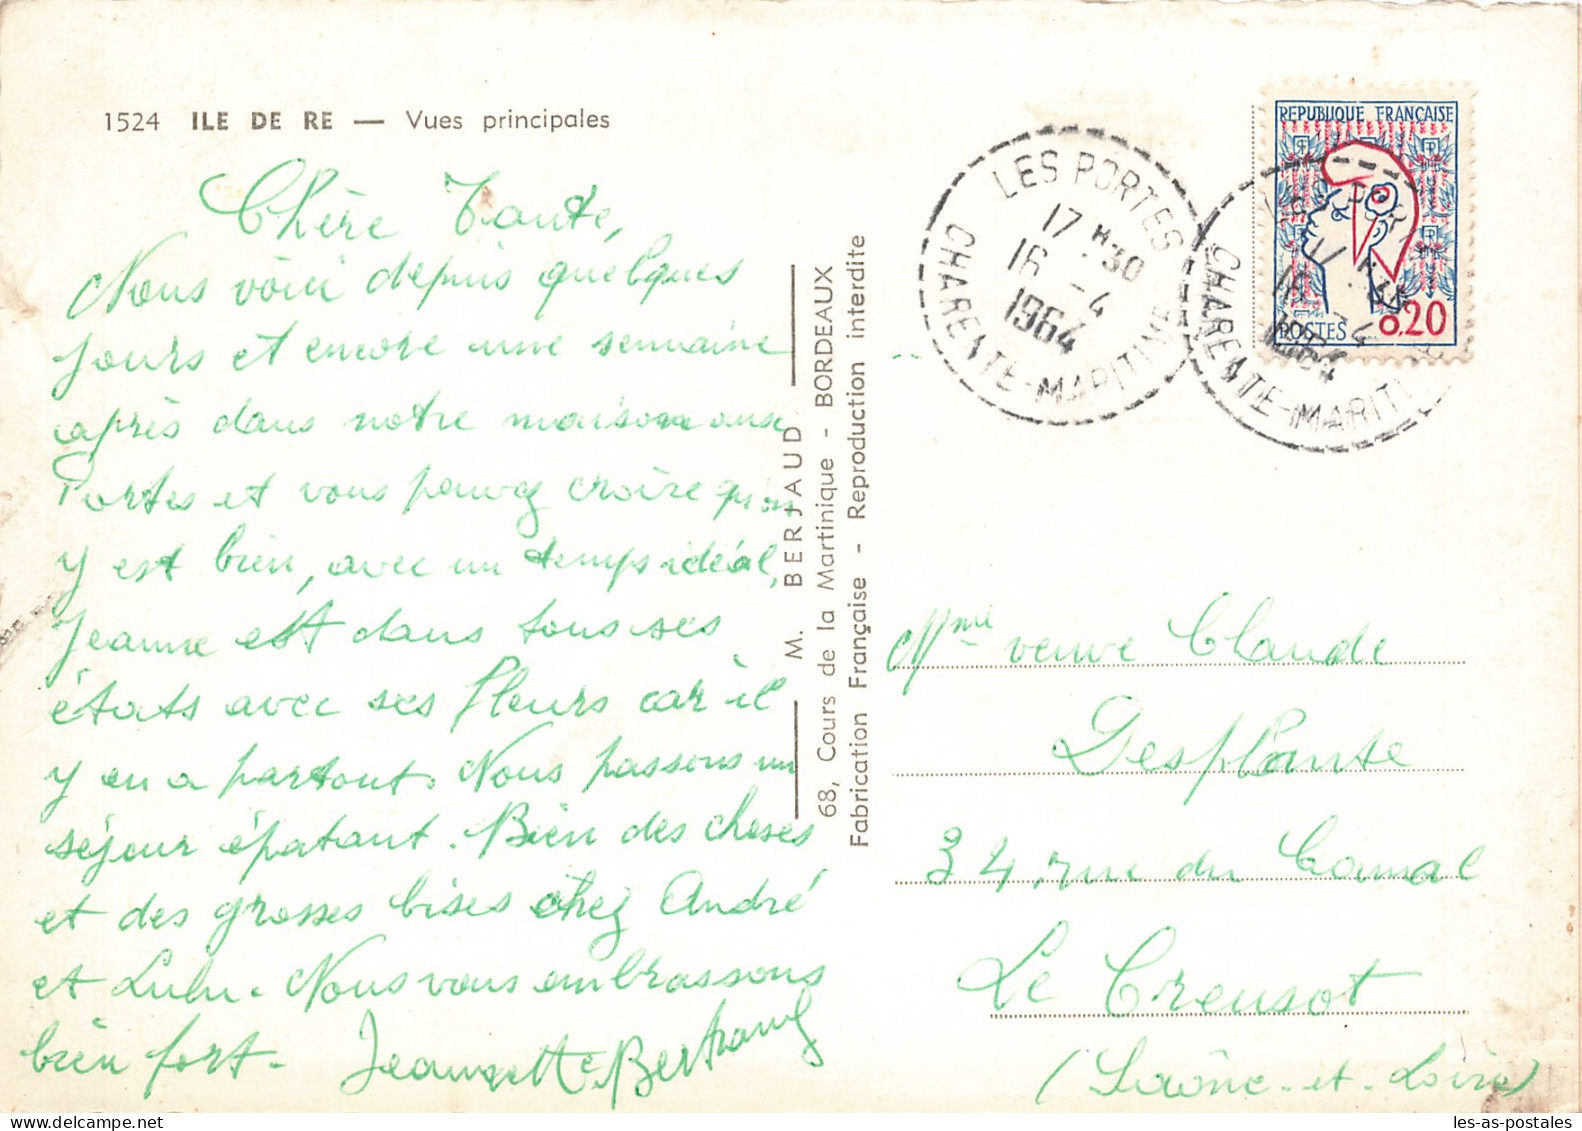 1524 ILE DE RE — Vues principales
Chère Tante,
Nous voici depuis quelques
jours et encore une semaine
après dans notre maison aux
Portes et vous pouvez croire qu'on
y est bien, avec un temps idéal,
Jeanne est dans tous ses
états avec ses fleurs car il
y en a partout. Nous passons un
séjour épatant. Bien des choses
et des grosses bises chez André
et Lulu. Nous vous embrassons
bien fort. Jeannette Bertrand
M. BERJAUD
68, Cours de la Martinique - BORDEAUX
Fabrication Française - Reproduction interdite
LES PORTES
17 H 30
16 -4
1964
CHARENTE-MARITIME
REPUBLIQUE FRANÇAISE
POSTES 0,20
1964
CHARENTE-MARITI
Mme veuve Claude
Desplante
34, rue du Canal
Le Creusot
(Saône-et-Loire)
les-as-postales